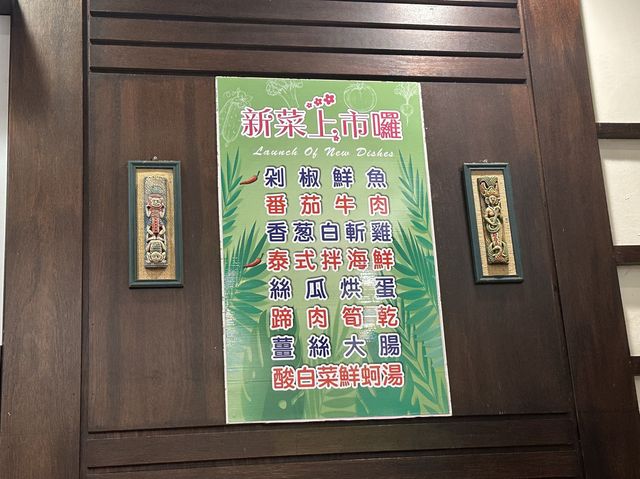 新菜上市囉
Launch Of New Dishes
剁椒鮮魚
番茄牛肉
香葱白斬雞
泰式拌海鮮
絲瓜烘蛋
蹄肉筍乾
薑絲大腸
酸白菜鮮蚵湯